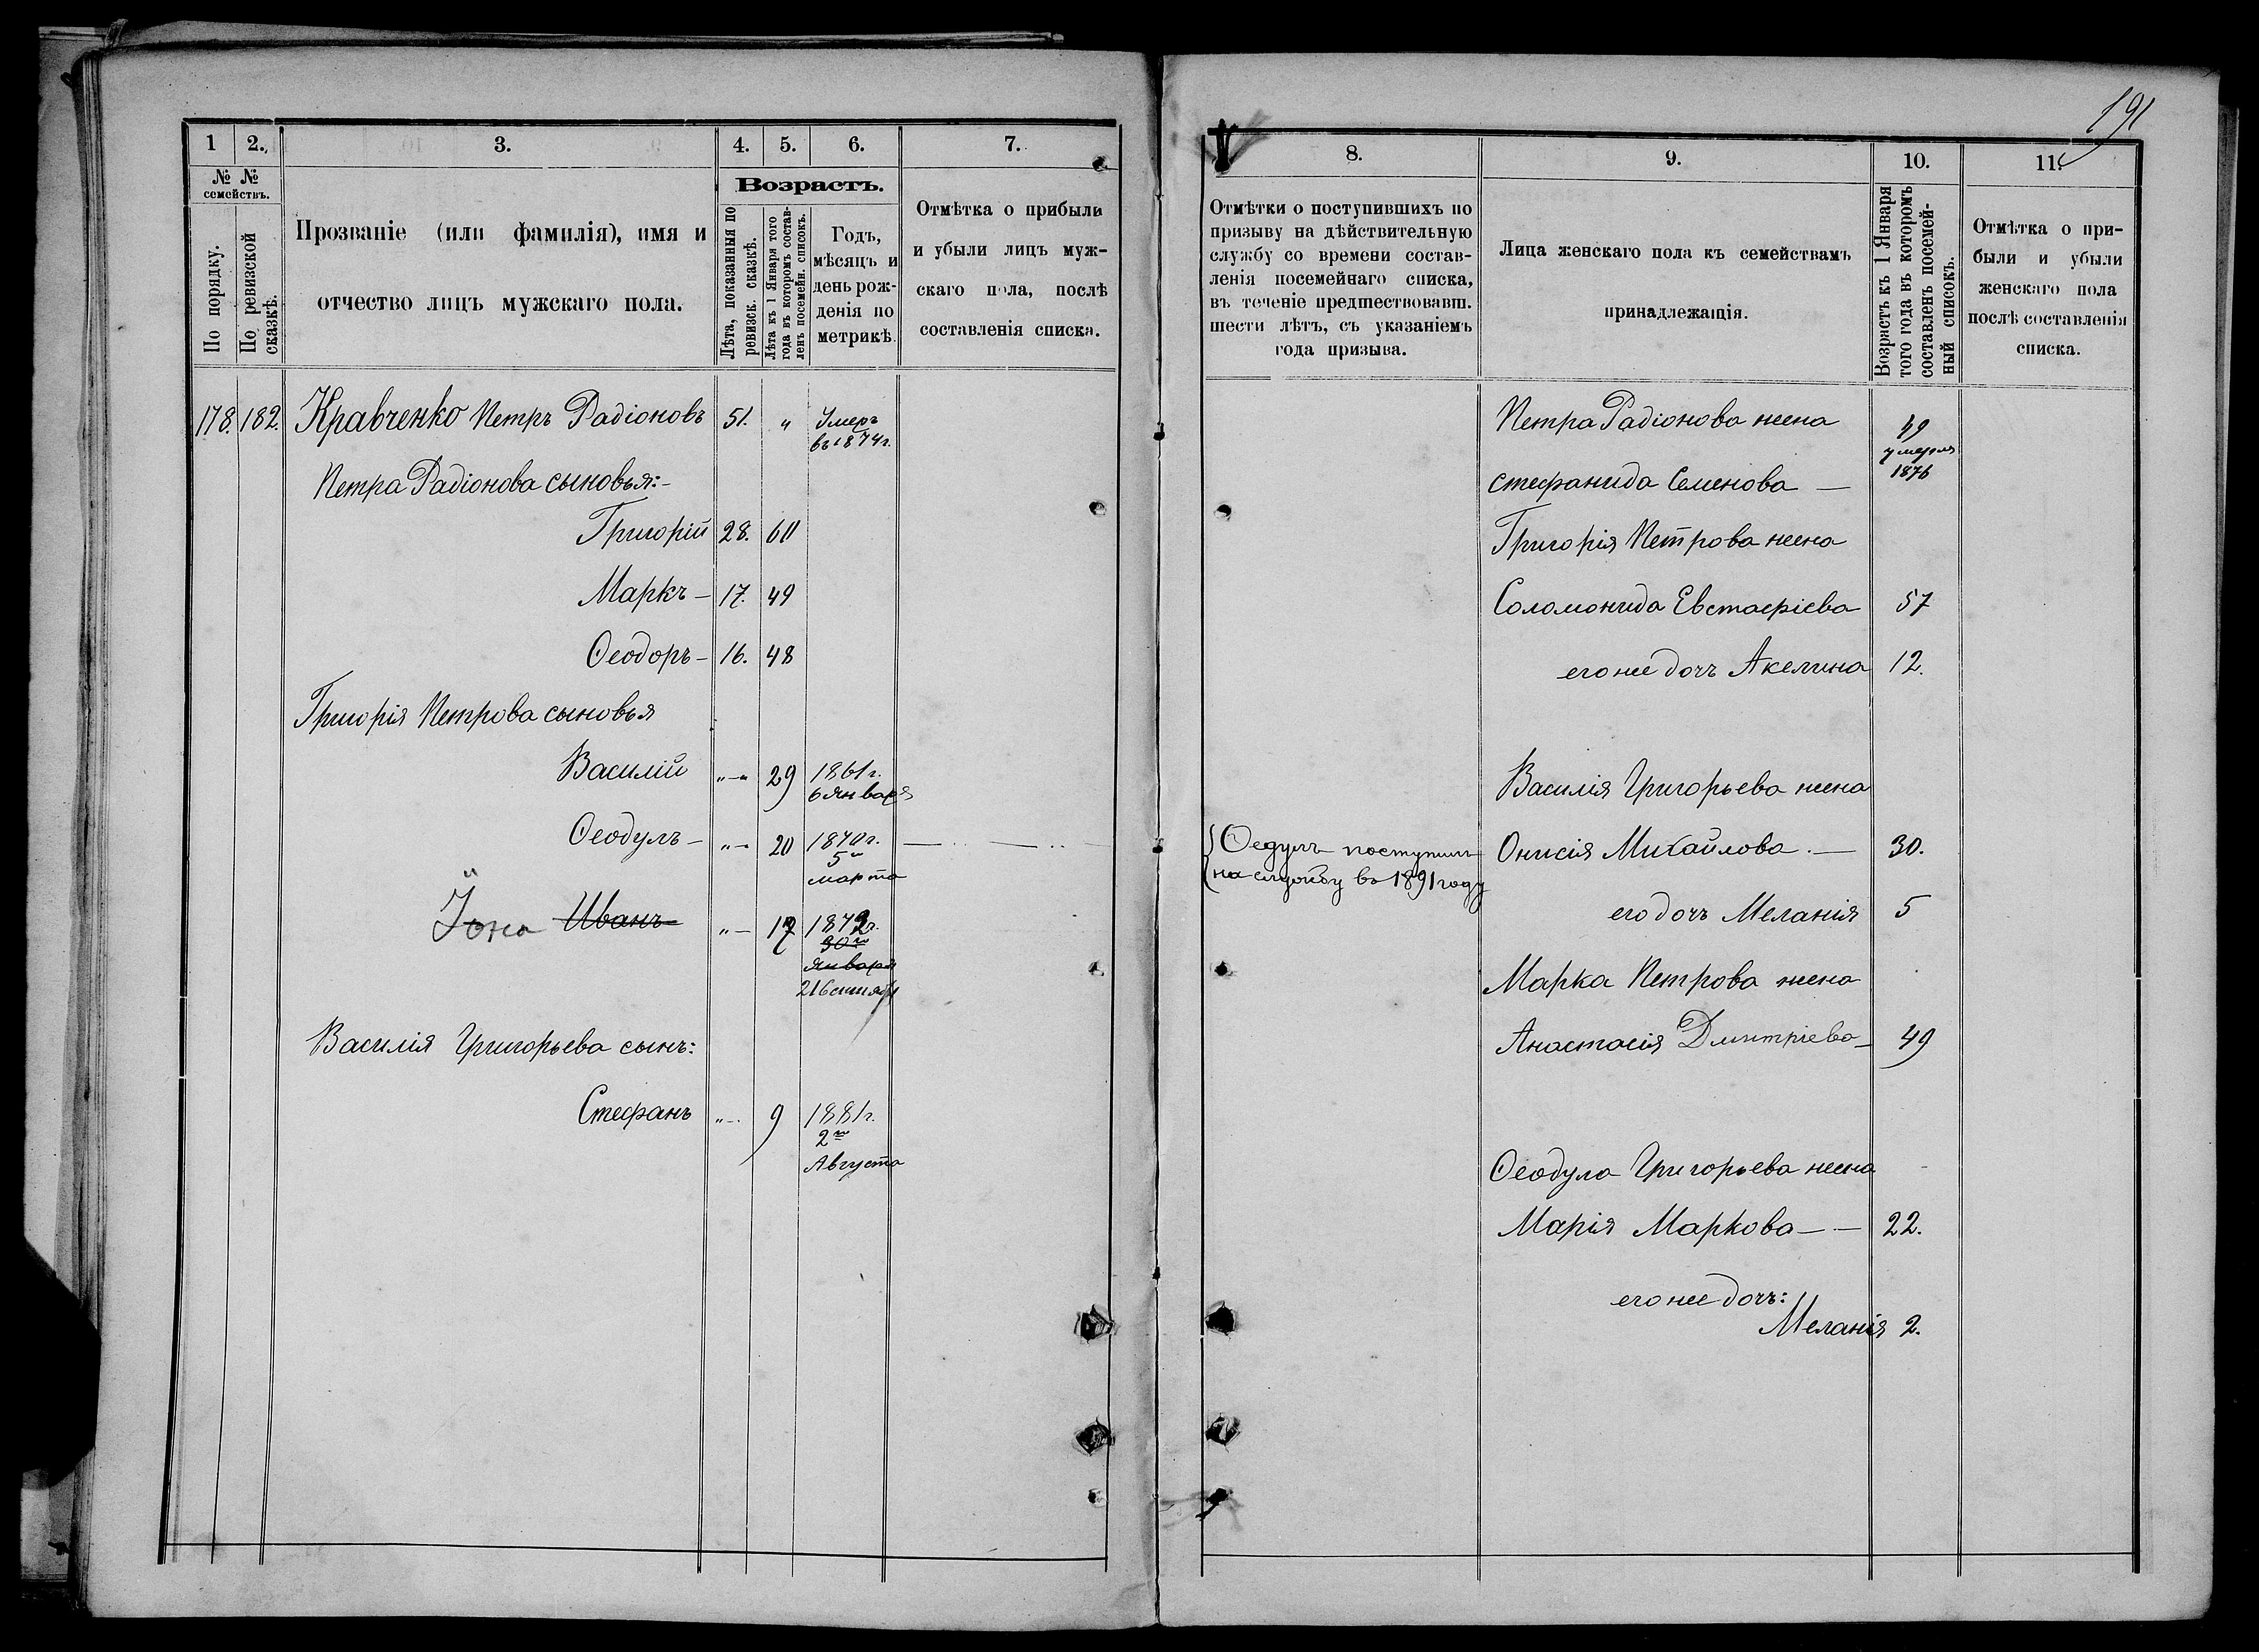 191
1
2.
3.
4.
5.
6.
7.
№ №
семействъ.
По порядку.
По ревизской
сказкѣ.
Прозваніе (или фамилія), имя и
отчество лицъ мужскаго пола.
Возрастъ.
Лѣта, показанныя по
ревизск. сказкѣ.
Лѣта къ 1 Января того
года въ которомъ состав-
ленъ посемейн. списокъ.
Годъ,
мѣсяцъ и
день рож-
денія по
метрикѣ.
Отмѣтка о прибыли
и убыли лицъ муж-
скаго пола, послѣ
составленія списка.
178. 182. Кравченко Петръ Радіоновъ 51. " Умеръ
въ 1874 г.
Петра Радіонова сыновья:-
Григорій 28. 60
Маркъ - 17. 49
Ѳеодоръ - 16. 48
Григорія Петрова сыновья
Василій "-" 29 1861 г.
6 января
Ѳеодулъ - "-" 20 1870 г.
5го
марта
Іона Иванъ "- 17 1872 г.
30го
января
21 Сентября
Василія Григорьева сынъ:
Стефанъ "-. 9 1881 г.
2го
Августа
8.
9.
10.
11.
Отмѣтки о поступившихъ по
призыву на дѣйствительную
службу со времени состав-
ленія посемейнаго списка,
въ теченіе предшествовавш.
шести лѣтъ, съ указаніемъ
года призыва.
Лица женскаго пола къ семействамъ
принадлежащія.
Возрастъ къ 1 Января
того года въ которомъ
составленъ посемей-
ный списокъ.
Отмѣтка о при-
были и убыли
женскаго пола
послѣ составленія
списка.
Петра Радіонова жена
49
умерла
1876
Стефанида Семенова —
Григорія Петрова жена
Соломонида Евстафіева 57
его же дочь Акелина 12.
Василія Григорьева жена
Ѳедулъ поступилъ
на службу въ 1891 году
Онисія Михайлова. — 30.
его дочь Меланія 5
Марка Петрова жена
Анастасія Дмитріева - 49
Ѳеодула Григорьева жена
Марія Маркова — — 22.
его же дочь:
Меланія 2.